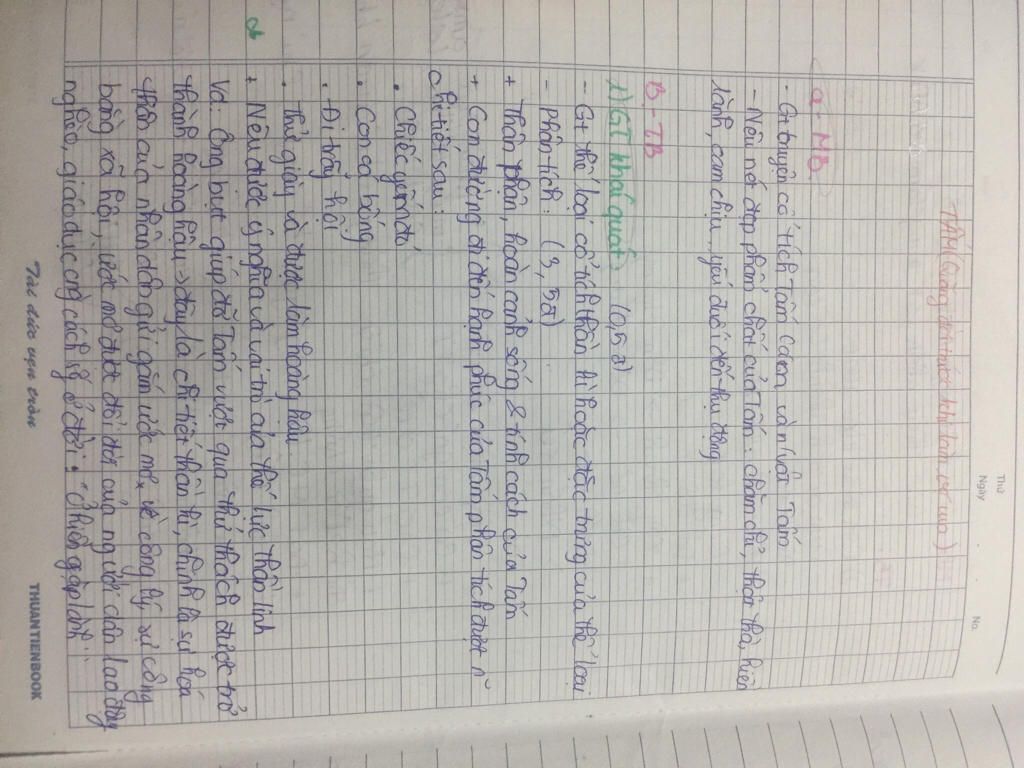 Thứ
Ngày
No.
TẤM (Quãng đời trước khi làm vợ vua)
a. MB
- Gt truyện cổ tích Tấm Cám và n/vật Tấm
- Nêu nét đẹp phẩm chất của Tấm: chăm chỉ, thật thà, hiền
lành, cam chịu, yếu đuối đến thụ động
B. TB
1) GT khái quát: (0,5đ)
- Gt thể loại cổ tích thần kì hoặc đặc trưng của thể loại
- Phân tích: (3,5đ)
+ Thân phận, hoàn cảnh sống & tính cách của Tấm
+ Con đường đi đến hạnh phúc của Tấm phân tích được n~
chi tiết sau:
• Chiếc yếm đỏ
• Con cá bống
• Đi trẩy hội
• Thử giày và được làm hoàng hậu
+ Nêu được ý nghĩa và vai trò của thế lực thần linh
Vd: Ông bụt giúp đỡ Tấm vượt qua thử thách được trở
thành hoàng hậu -> đây là chi tiết thần kì, chính là sự hoá
thân của nhân dân gửi gắm ước mơ về công lý xã công
bằng xã hội, ước mơ được đổi đời của người dân lao động
nghèo, giáo dục cong cách lý ở đời: "Ở hiền gặp lành"..
Tài đức vẹn toàn
THUANTIENBOOK